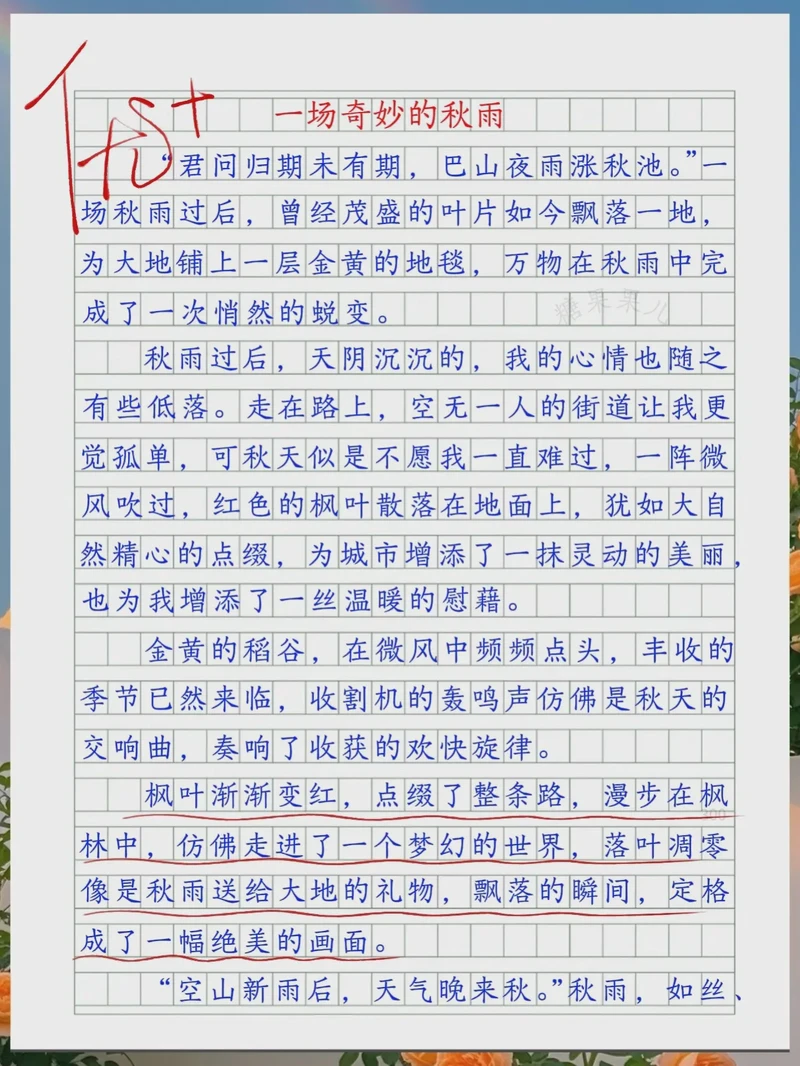 优+
一场奇妙的秋雨
“君问归期未有期，巴山夜雨涨秋池。”一
场秋雨过后，曾经茂盛的叶片如今飘落一地，
为大地铺上一层金黄的地毯，万物在秋雨中完
成了一次悄然的蜕变。
糖果果儿
秋雨过后，天阴沉沉的，我的心情也随之
有些低落。走在路上，空无一人的街道让我更
觉孤单，可秋天似是不愿我一直难过，一阵微
风吹过，红色的枫叶散落在地面上，犹如大自
然精心的点缀，为城市增添了一抹灵动的美丽，
也为我增添了一丝温暖的慰藉。
金黄的稻谷，在微风中频频点头，丰收的
季节已然来临，收割机的轰鸣声仿佛是秋天的
交响曲，奏响了收获的欢快旋律。
枫叶渐渐变红，点缀了整条路，漫步在枫
300
林中，仿佛走进了一个梦幻的世界，落叶凋零
像是秋雨送给大地的礼物，飘落的瞬间，定格
成了一幅绝美的画面。
“空山新雨后，天气晚来秋。”秋雨，如丝、